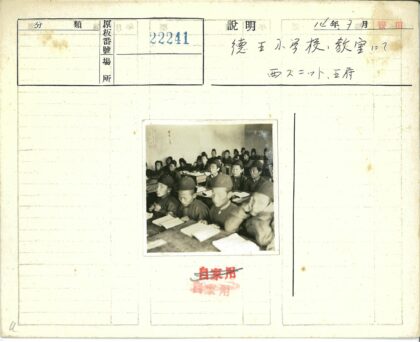 分類
原板番號場所
22241
説明
14年9月
德王小学校、教室にて
西スニット、王府
自家用
自家用